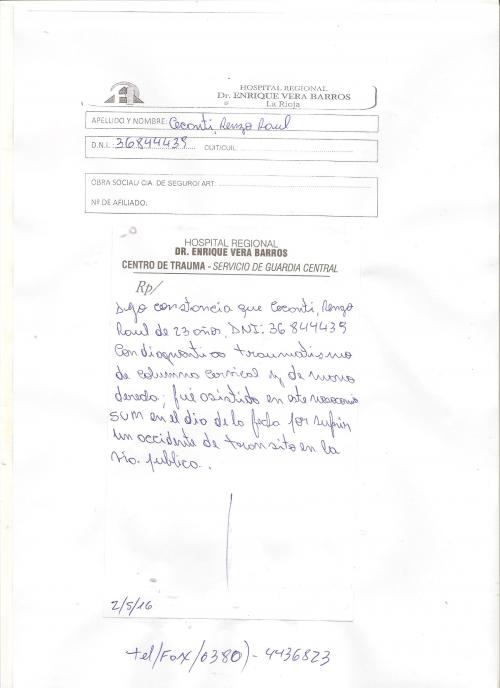 HOSPITAL REGIONAL
Dr. ENRIQUE VERA BARROS
La Rioja
APELLIDO Y NOMBRE: Ceconti, Renzo Raul
D.N.I.: 36844439 CUIT/CUIL:
OBRA SOCIAL/ CIA. DE SEGURO/ ART:
Nº DE AFILIADO:
HOSPITAL REGIONAL
DR. ENRIQUE VERA BARROS
CENTRO DE TRAUMA - SERVICIO DE GUARDIA CENTRAL
Rp/
Dejo constancia que Ceconti, Renzo
Raul de 23 años, DNI: 36 844439
Con diagnostico traumatismo
de columna cervical y de mano
derecha; fué asistido en este nosocomio
SUM en el dia de la fecha por sufrir
un accidente de transito en la
via publica.
2/5/16
tel/Fax/0380)-4436823